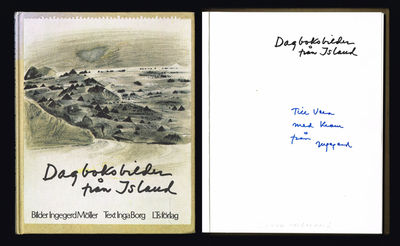 Dagboksbilder
från Island
Bilder Ingegerd Möller Text Inga Borg LTs förlag
Dagboksbilder
från Island
Till Vera
med Kram
från Ingegerd